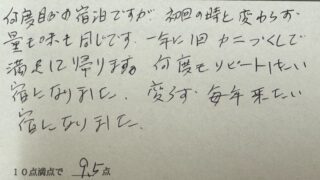 何度目かの宿泊ですが 初回の時と変わらず
量も味も同じです。一年に1回 カニづくしで
満足して帰ります。何度もリピートしたい
宿になりました。変らず 毎年来たい
宿になりました。
10点満点で 9.5点